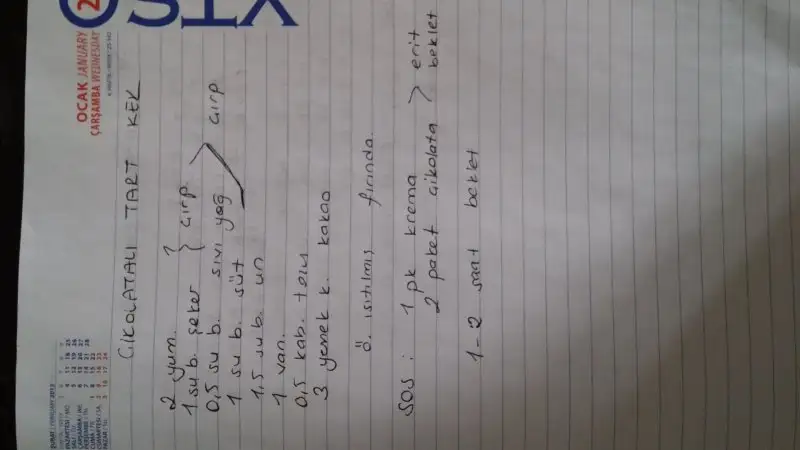 OCAK JANUARY
ÇARŞAMBA WEDNESDAY
ŞUBAT / FEBRUARY 2013
ÇİKOLATALI TART KEK
2 yum.
1 su b. şeker } çırp
0,5 su b. sıvı yağ
1 su b. süt > çırp
1,5 su b. un
1 van.
0,5 kab. tozu
3 yemek k. kakao
ö. ısıtılmış fırında.
SOS : 1 pk krema
2 paket çikolata > erit beklet
1-2 saat beklet